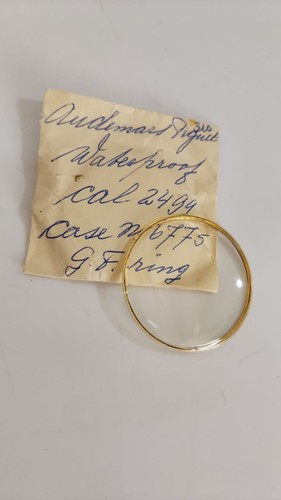 Audemars Piguet
Waterproof
cal 2499
case N 6775
G.F. ring